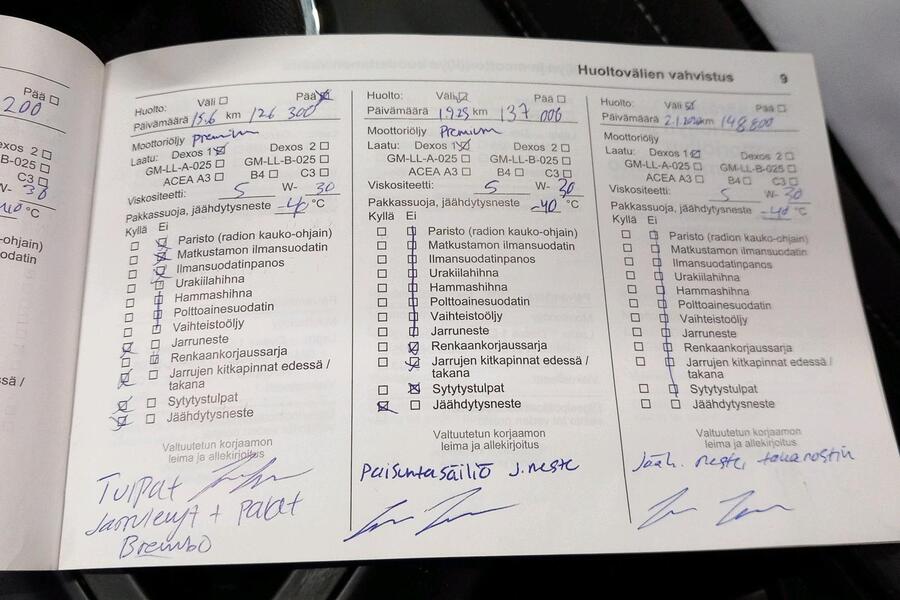 Huoltovälien vahvistus 9
Pää
200
exos 2
L-B-025
C3
W- 30
°C
-ohjain)
odatin
ssä /
Huolto: Väli Pää
Päivämäärä 15.6 km 126 300
Moottoriöljy premium
Laatu: Dexos 1 Dexos 2
GM-LL-A-025 GM-LL-B-025
ACEA A3 B4 C3
Viskositeetti: 5 W- 30
Pakkassuoja, jäähdytysneste -40 °C
Kyllä Ei
Paristo (radion kauko-ohjain)
Matkustamon ilmansuodatin
Ilmansuodatinpanos
Urakiilahihna
Hammashihna
Polttoainesuodatin
Vaihteistoöljy
Jarruneste
Renkaankorjaussarja
Jarrujen kitkapinnat edessä /
takana
Sytytystulpat
Jäähdytysneste
Valtuutetun korjaamon
leima ja allekirjoitus
Tulpat
Jarrulevyt + palat
Brembo
Huolto: Väli Pää
Päivämäärä km 137 006
Moottoriöljy Premium
Laatu: Dexos 1 Dexos 2
GM-LL-A-025 GM-LL-B-025
ACEA A3 B4 C3
Viskositeetti: 5 W- 30
Pakkassuoja, jäähdytysneste -40 °C
Kyllä Ei
Paristo (radion kauko-ohjain)
Matkustamon ilmansuodatin
Ilmansuodatinpanos
Urakiilahihna
Hammashihna
Polttoainesuodatin
Vaihteistoöljy
Jarruneste
Renkaankorjaussarja
Jarrujen kitkapinnat edessä /
takana
Sytytystulpat
Jäähdytysneste
Valtuutetun korjaamon
leima ja allekirjoitus
Paisuntasäiliö J.neste
Huolto: Väli Pää
Päivämäärä km 148 800
Moottoriöljy
Laatu: Dexos 1 Dexos 2
GM-LL-A-025 GM-LL-B-025
ACEA A3 B4 C3
Viskositeetti: 5 W- 30
Pakkassuoja, jäähdytysneste -40 °C
Kyllä Ei
Paristo (radion kauko-ohjain)
Matkustamon ilmansuodatin
Ilmansuodatinpanos
Urakiilahihna
Hammashihna
Polttoainesuodatin
Vaihteistoöljy
Jarruneste
Renkaankorjaussarja
Jarrujen kitkapinnat edessä /
takana
Sytytystulpat
Jäähdytysneste
Valtuutetun korjaamon
leima ja allekirjoitus
Jääh. neste, termostin